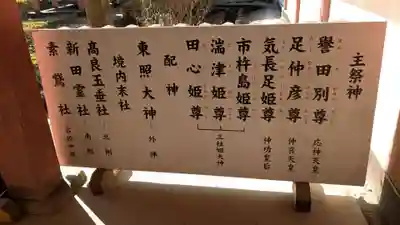 主祭神
誉田別尊 応神天皇
足仲彦尊 仲哀天皇
気長足姫尊 神功皇后
市杵島姫尊
湍津姫尊 三社姫大神
田心姫尊
配神
東照大神 外
境内末社
高良玉垂社
新田霊社
素鵞社